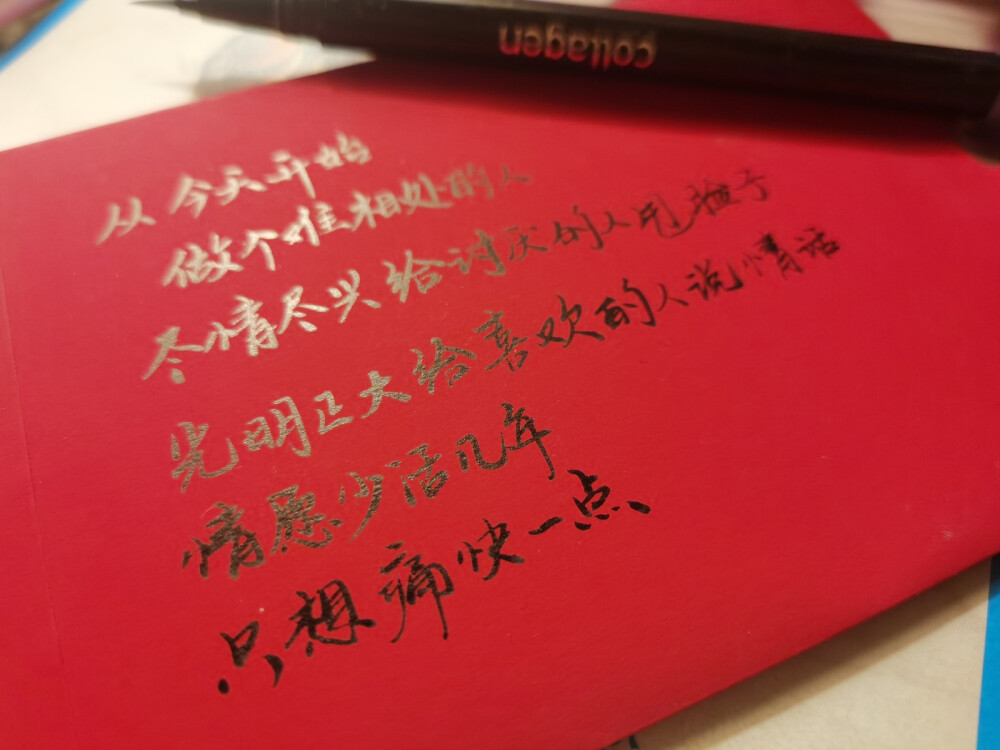 collagen
从今天开始
做个难相处的人
尽情尽兴给讨厌的人甩脸子
光明正大给喜欢的人说情话
情愿少活几年
只想痛快一点